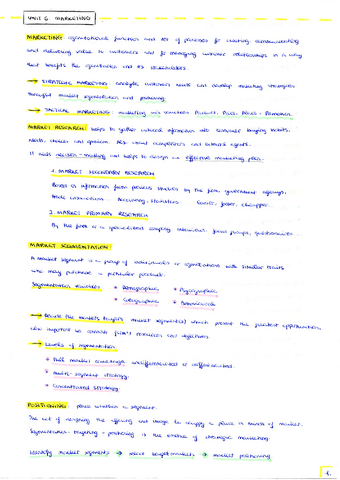 UNIT 6. MARKETING
MARKETING: organisational function and set of processes for creating, communicating
and delivering value to customers and for managing customer relationships in a way
that benefits the organisation and its stakeholders.
→ STRATEGIC MARKETING: analyse customers needs and develop marketing strategies
through market segmentation and positioning.
→ TACTICAL MARKETING: marketing mix Product, Price, Place, Promotion.
MARKET RESEARCH: helps to gather relevant information about consumer buying habits,
needs, choices and opinions. Also about competitors and
It aids decision-making and helps to design an effective marketing plan.
1. MARKET SECONDARY RESEARCH
Based on information from previous studies by the firm, government agencies,
trade associations. Accuracy, Faster, cheaper.
2. MARKET PRIMARY RESEARCH
By the firm or a specialised company: interviews, focus groups, questionnaires...
MARKET SEGMENTATION
A market segment is a group of individuals or organisations with similar traits
who may purchase a particular product.
Segmentation variables • Demographic • Psychographic
• Geographic • Behavioural
→ Decide the market target (market segments) which present the greatest opportunities.
Also important to consider firm's resources and objectives.
→ Levels of segmentation
• Full market coverage: undifferentiated or differentiated.
• Multi-segment strategy.
• Concentrated strategy.
POSITIONING: place within a segment.
The act of designing the offering and image to occupy a place in minds of market.
Segmentation - targeting - positioning is the essence of strategic marketing.
Identify market segments → select target markets → market positioning
1.